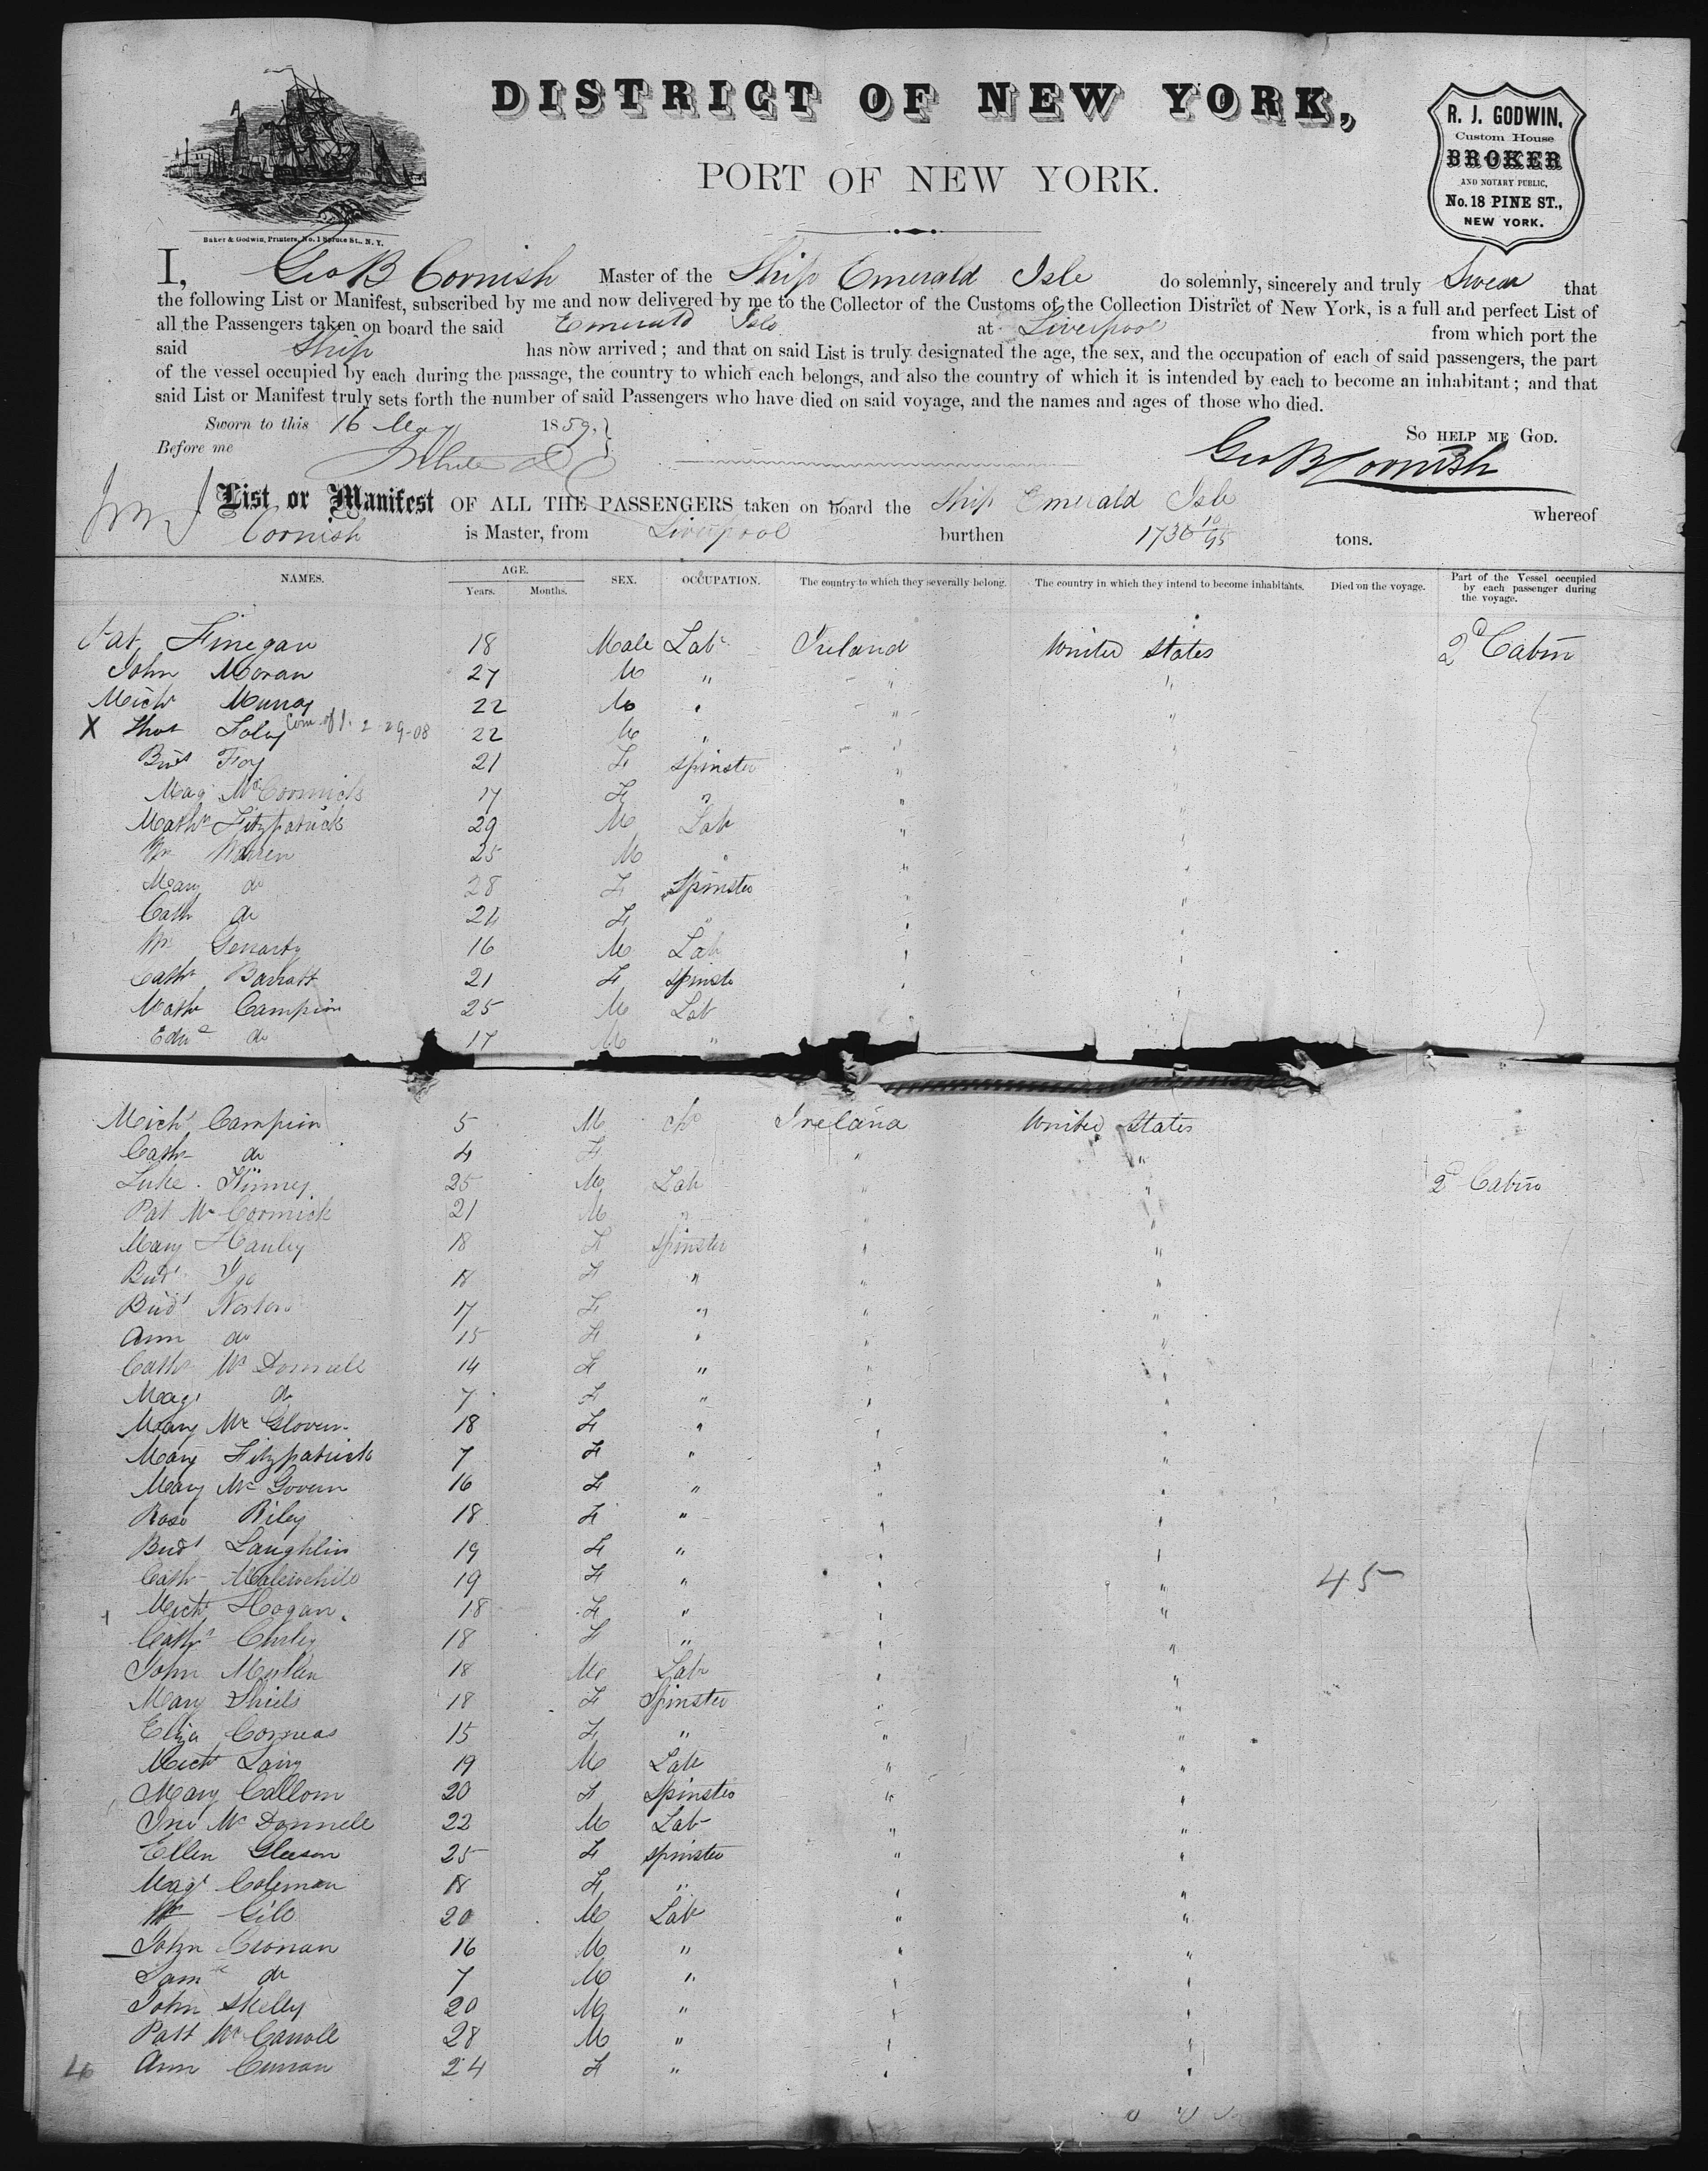 DISTRICT OF NEW YORK,
PORT OF NEW YORK.
R. J. GODWIN,
Custom House
BROKER
AND NOTARY PUBLIC,
No. 18 PINE ST.,
NEW YORK.
Baker & Godwin, Printers, No. 1 Spruce St., N. Y.
I, Geo B Cornish Master of the Ship Emerald Isle do solemnly, sincerely and truly Swear that
the following List or Manifest, subscribed by me and now delivered by me to the Collector of the Customs of the Collection District of New York, is a full and perfect List of
all the Passengers taken on board the said Emerald Isle at Liverpool from which port the
said Ship has now arrived; and that on said List is truly designated the age, the sex, and the occupation of each of said passengers, the part
of the vessel occupied by each during the passage, the country to which each belongs, and also the country of which it is intended by each to become an inhabitant; and that
said List or Manifest truly sets forth the number of said Passengers who have died on said voyage, and the names and ages of those who died.
Sworn to this 16 May 1859.
So help me God.
Before me
Geo B Cornish
List or Manifest OF ALL THE PASSENGERS taken on board the Ship Emerald Isle whereof
Cornish is Master, from Liverpool burthen 1736 10/95 tons.
NAMES. AGE. Years. Months. SEX. OCCUPATION. The country to which they severally belong. The country in which they intend to become inhabitants. Died on the voyage. Part of the Vessel occupied by each passenger during the voyage.
Pat Finegan 18 Male Lab Ireland United States 2d Cabin
John Moran 27 M " " "
Mich Murray 22 M " " "
X Thos Foley 2-29-08 22 M " " "
Brid Foy 21 F Spinster " "
Mag McCormick 17 F " " "
Math Fitzpatrick 29 M Lab " "
Wm Warren 25 M " " "
Mary do 28 F Spinster " "
Cath do 24 F " " "
Wm 16 M Lab " "
Cath Barratt 21 F Spinste " "
Math Campion 25 M Lab " "
Edwd do 17 M "
Mich Campion 5 M ch Ireland United States
Cath do 4 F " "
Luke Kinney 25 M Lab " " 2d Cabin
Pat McCormick 21 M " " "
Mary Hanley 18 F Spinster " "
Brid Igo 18 F " " "
Brid Norton 17 F " " "
Ann do 15 F " " "
Cath McDonnell 14 F " " "
Mag do 7 F " " "
Mary McGlovern 18 F " " "
Mary Fitzpatrick 7 F " " "
Mary McGovern 16 F " " "
Rose Riley 18 F " " "
Brid Laughlin 19 F " " "
Cath 19 F " " " 45
Mich Hogan 18 F " " "
Cath Curley 18 F " " "
John 18 M Lab " "
Mary Shiels 18 F Spinster " "
Eliza 15 F " " "
Mich 19 M Lab " "
Mary Callom 20 F Spinster " "
Jno McDonnell 22 M Lab " "
Ellen Gleeson 25 F Spinster " "
Magt Coleman 18 F " " "
Wm Gill 20 M Lab " "
John Cronan 16 M " " "
do 7 M " " "
John Skelly 20 M " " "
Patt McCarroll 28 M " " "
Ann Curran 24 F " " "